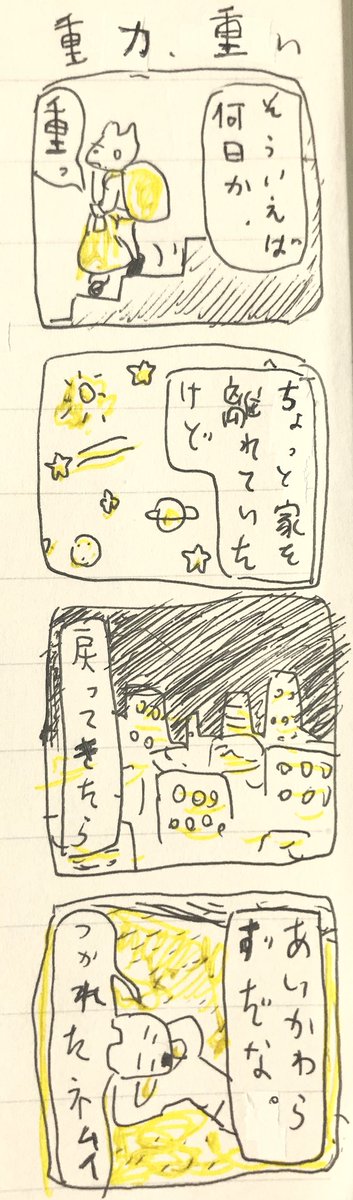 重力、重い
そういえば
何日か、
重っ
ちょっと家を
離れていた
けど
戻ってきたら
あいかわら
ずだな。
つかれたネムイ